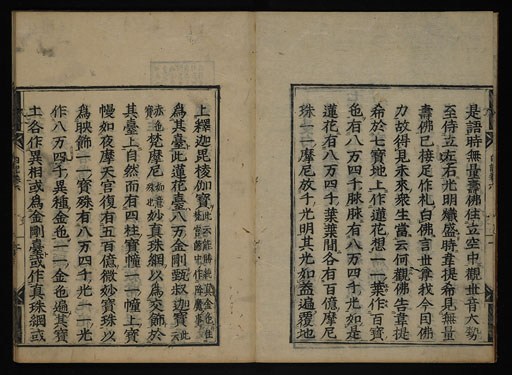 是語時無量壽佛住立空中觀世音大勢
至侍立左右光明熾盛時韋提希見無量
壽佛已接足作礼白佛言世尊我今因佛
力故得見未來衆生當云何觀佛告韋提
希於七寶地上作蓮花想一一葉作百寶
色有八万四千脉脉有八万四千光如是
蓮花有八万四千葉葉間各有百億摩尼
珠一一摩尼放千光明其光如盖遍覆地
上釋迦毘棱伽寶
爲其臺此蓮花臺八万金剛甄叔迦寶
梵摩尼妙真珠網以爲交飾於
其臺上自然而有四柱寶幢一一幢上寶
幔如夜摩天宮復有五百億微妙寶珠以
爲映飾一一寶珠有八万四千光一一光
作八万四千異種金色一一金色遍其寶
土各作異相或爲金剛臺或作真珠網或